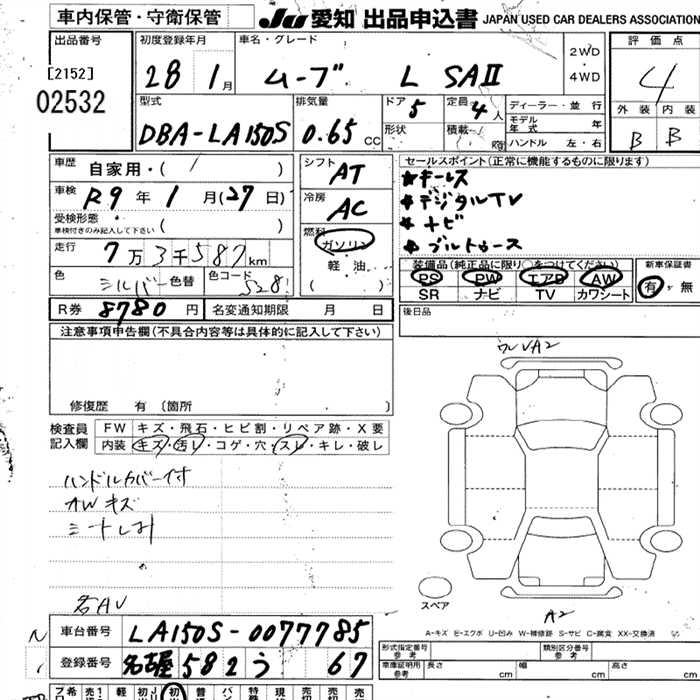 車内保管・守衛保管
JU 愛知 出品申込書 JAPAN USED CAR DEALERS ASSOCIATION
出品番号 初度登録年月 車名・グレード 2WD 4WD 評価点
[2152] 28 1月 ムーブ L SAⅡ 4
02532
型式 排気量 ドア 5 定員 4人 ディーラー・並行 外装 内装
DBA-LA150S 0.65 cc 形状 積載 kg モデル年式 年 B B
ハンドル 左・右
車歴 自家用・( / ) シフト AT セールスポイント(正常に機能するものに限ります)
車検 R9年 1月(27日) 冷房 AC ★キーレス
受検形態 ★デジタルTV
車検付きのみ記入して下さい ( ) 燃料 ★ナビ
走行 7万3千587km ガソリン ★ブルートゥース
軽・油
( )
色 シルバー 色替 色コード S28 装備品(純正品に限り○をつけてください) 新車保証書
PS PW エアB AW 有・無
SR ナビ TV カワシート
R券 8780円 名変通知期限 月 日 後日品
注意事項申告欄(不具合内容等は具体的に記入して下さい)
修復歴 有 (箇所 )
検査員記入欄 FW キズ・飛石・ヒビ割・リペア跡・X要
内装 キズ・汚レ・コゲ・穴・スレ・キレ・破レ
ハンドルカバー付
AWキズ
A2
各AU
スペア
A2
A-キズ E-エクボ U-凹み W-補修跡 S-サビ C-腐食 XX-交換済
車台番号 LA150S-0077785
形式指定番号 類別区分番号
登録番号 名古屋 582 う 67
車庫証明用参考 長さ cm 幅 cm 高さ cm